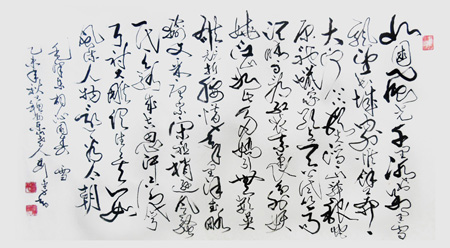 北国风光千里冰封万里雪
飘望长城内外惟余莽莽
大河上下顿失滔滔山舞银蛇
原驰蜡象欲与天公试比高
须晴日看红装素裹分外妖
娆江山如此多娇引无数英
雄竞折腰惜秦皇汉武略
输文采唐宗宋祖稍逊风骚
一代天骄成吉思汗只识弯
弓射大雕俱往矣数
风流人物还看今朝
毛泽东 沁园春 雪
乙未年秋